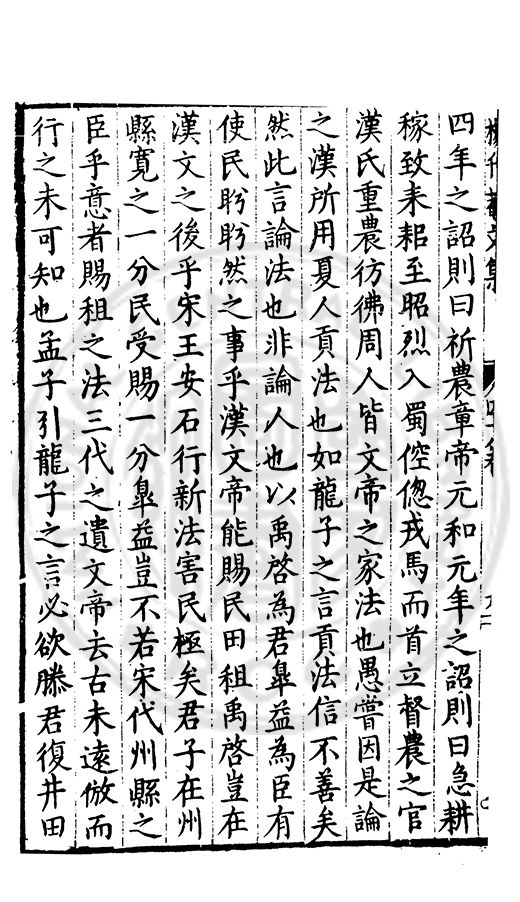 四年之詔則曰祈農章帝元和元年之詔則曰急耕
稼致耒耜至昭烈入蜀倥偬戎馬而首立督農之官
漢氏重農彷彿周人皆文帝之家法也愚嘗因是論
之漢所用夏人貢法也如龍子之言貢法信不善矣
然此言論法也非論人也以禹啓為君臯益為臣有
使民盻盻然之事乎漢文帝能賜民田租禹啓豈在
漢文之後乎宋王安石行新法害民極矣君子在州
縣寛之一分民受賜一分臯益豈不若宋代州縣之
臣乎意者賜租之法三代之遺文帝去古未遠倣而
行之未可知也孟子引龍子之言必欲滕君復井田